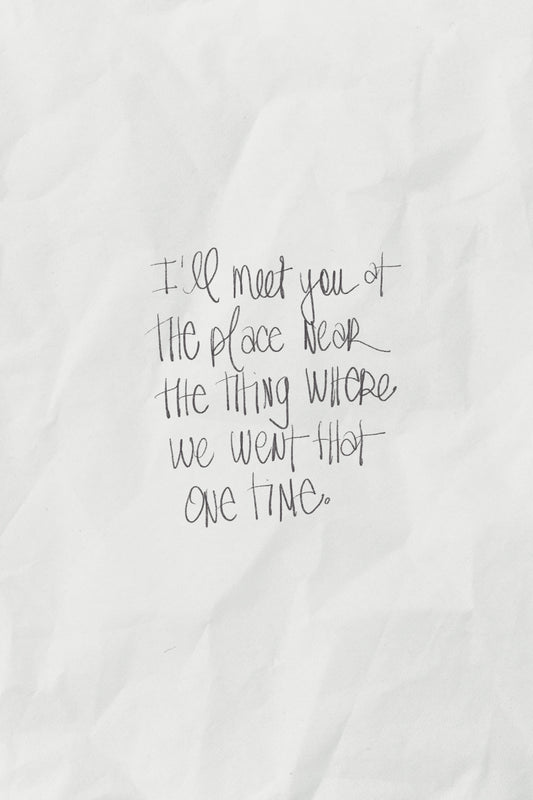 I'll meet you at
THE place NEAR
tHE THiNg WHERe
we weNt tHat
ONE tiME.